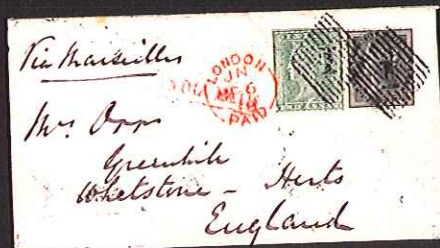 Via Marseilles
LONDON
JN
6
PAID
Mrs Orps
Greenhite
Whetstone - Herts
England